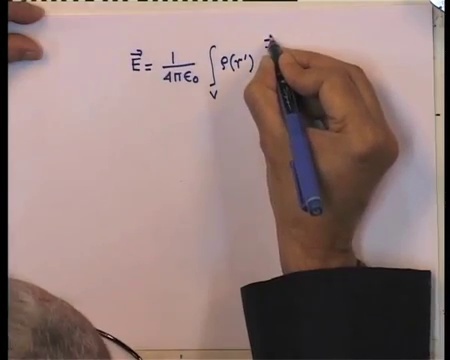 \vec{E} = \frac{1}{4\pi\epsilon_0} \int_V \rho(r')